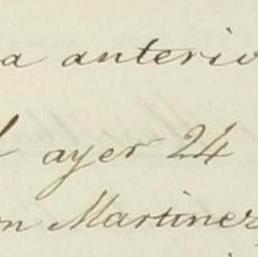 a anterio
l ayer 24
n Martinez